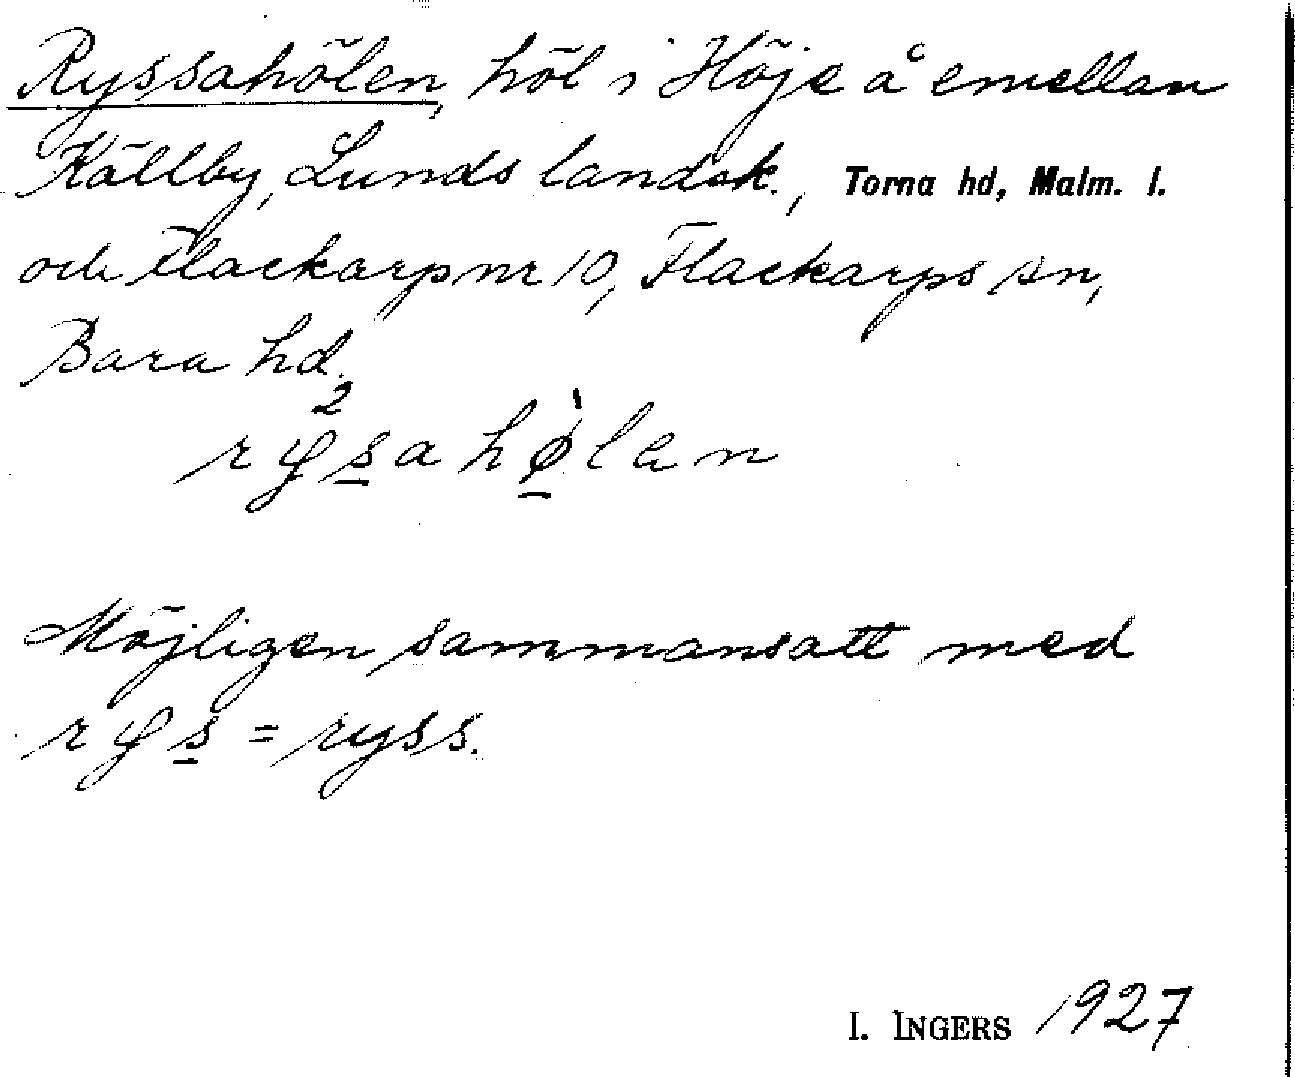 Ryssahölen, höl i Höje å emellan
Källby, Lunds landsk., Torna hd, Malm. l.
och Flackarp nr 10, Flackarps sn,
Bara hd.
Möjligen sammansatt med
= ryss.
I. INGERS 1927